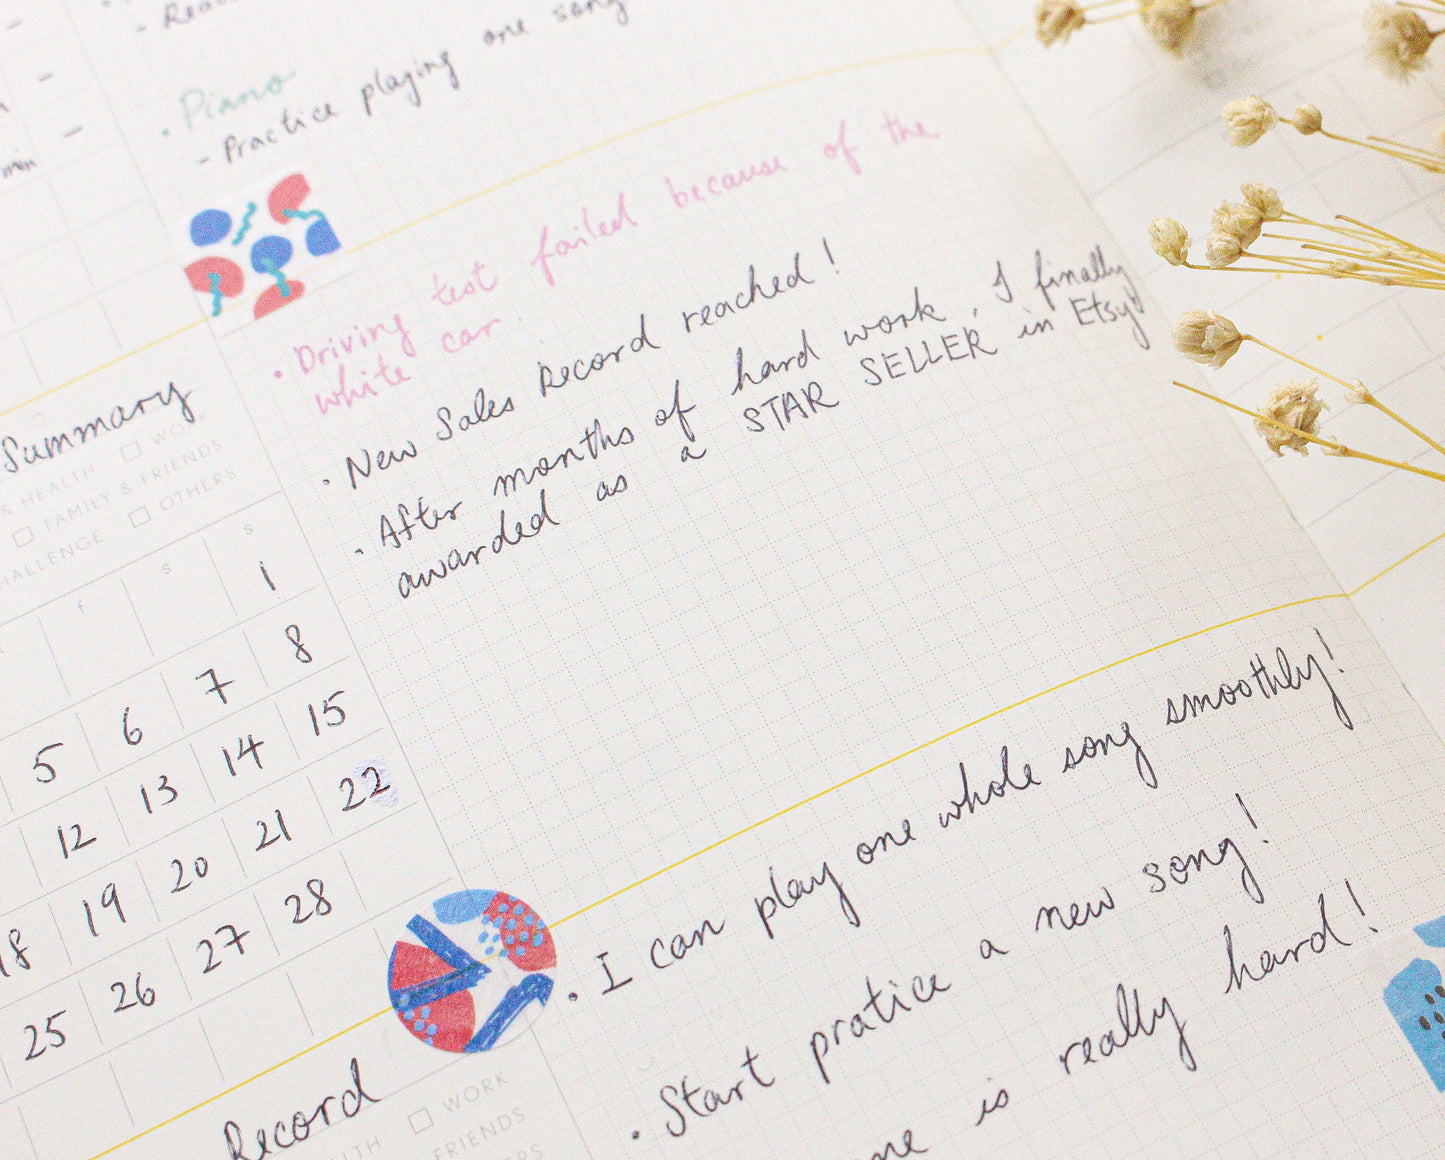 - Practice playing one song
• Piano
min
• Driving test failed because of the
white car.
• New Sales Record reached!
• After months of hard work, I finally
awarded as a STAR SELLER in Etsy!
Summary
WORK
& HEALTH
FAMILY & FRIENDS
OTHERS
f s s
1
5 6 7 8
12 13 14 15
18 19 20 21 22
25 26 27 28
• I can play one whole song smoothly!
• Start pratice a new song!
is really hard!
Record
WORK
FRIENDS